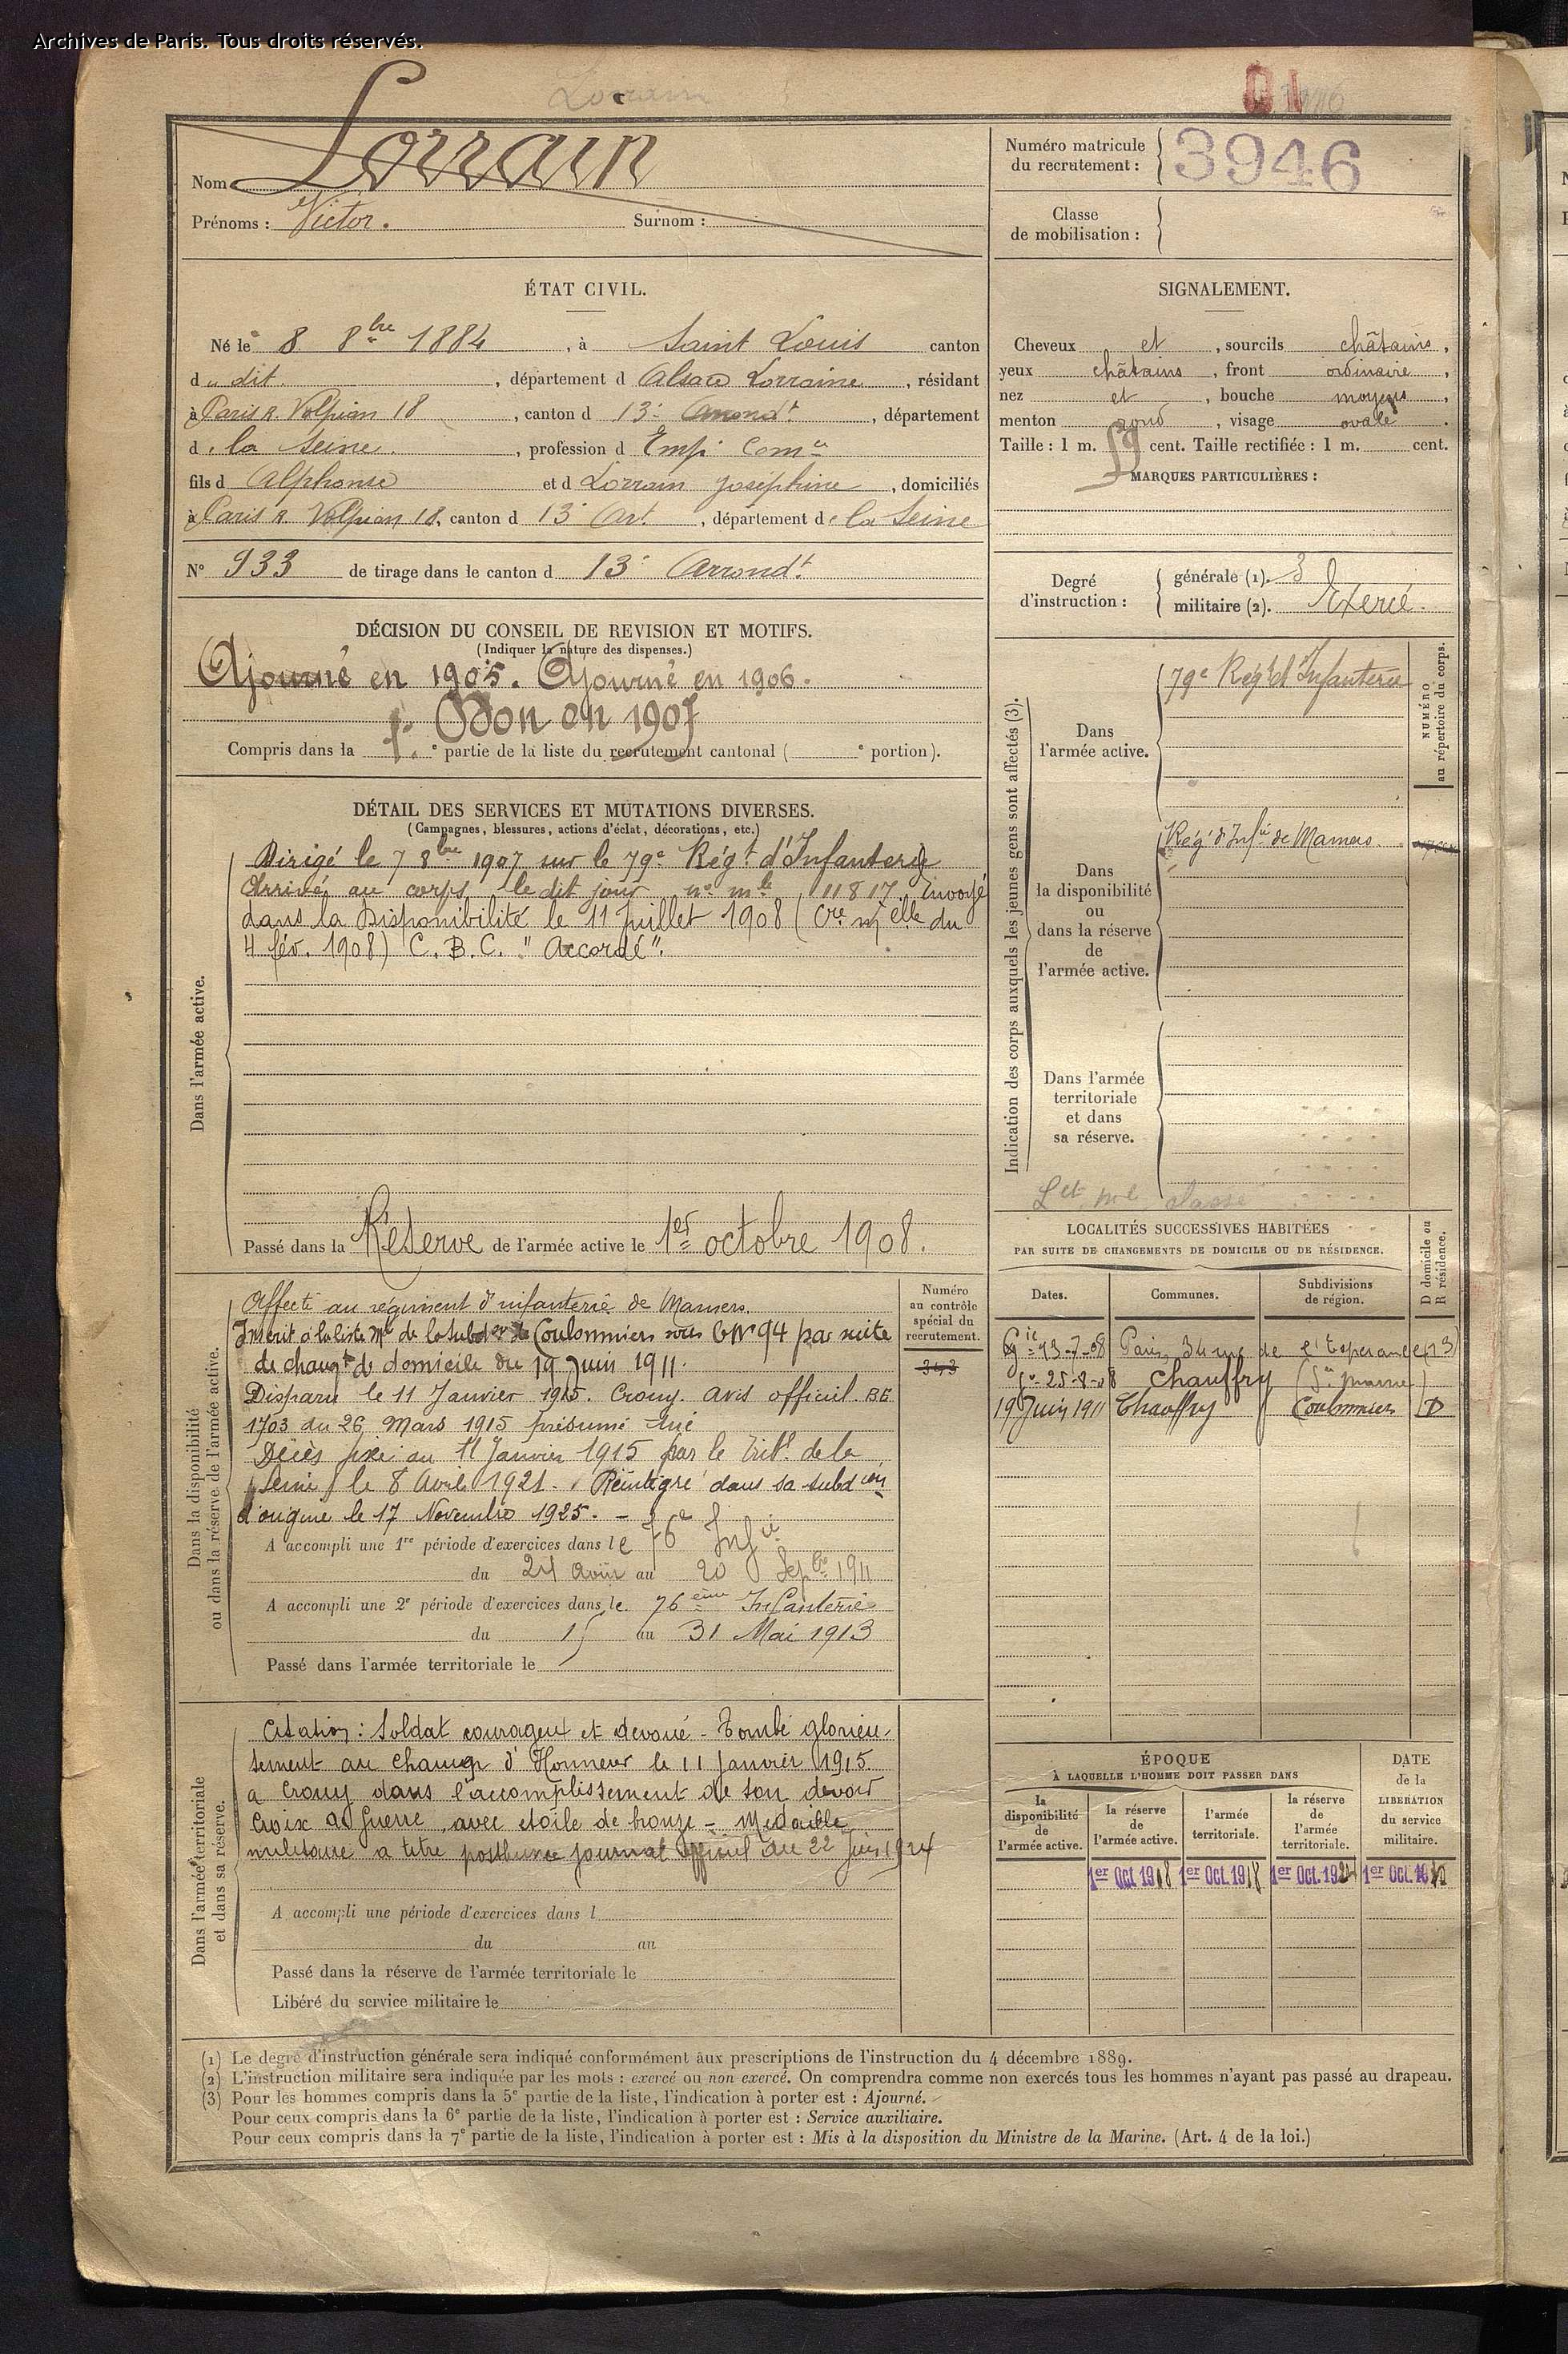 Archives de Paris. Tous droits réservés.
Lorrain
Nom Lorrain
Prénoms : Victor. Surnom :
Numéro matricule
du recrutement : 3946
Classe
de mobilisation :
ÉTAT CIVIL.
Né le 8 8bre 1884, à Saint Louis canton
d u dit, département d Alsace Lorraine, résidant
à Paris R. Volpian 18, canton d 13e Arrondt, département
d e la Seine, profession d Empl Comce
fils d Alphonse et d Lorrain Joséphine, domiciliés
à Paris R. Volpian 18, canton d 13e Art., département de la Seine
N° 933 de tirage dans le canton d 13e Arrondt.
SIGNALEMENT.
Cheveux et, sourcils châtains,
yeux châtains, front ordinaire,
nez et, bouche moyens,
menton rond, visage ovale.
Taille : 1 m. 59 cent. Taille rectifiée : 1 m. cent.
MARQUES PARTICULIÈRES :
Degré
d'instruction :
générale (1). 3
militaire (2). Exercé.
DÉCISION DU CONSEIL DE REVISION ET MOTIFS.
(Indiquer la nature des dispenses.)
Ajourné en 1905. Ajourné en 1906.
Bon en 1907
Compris dans la 1e partie de la liste du recrutement cantonal ( e portion).
DÉTAIL DES SERVICES ET MUTATIONS DIVERSES.
(Campagnes, blessures, actions d'éclat, décorations, etc.)
Dans l'armée active.
Dirigé le 7 8bre 1907 sur le 79e Régt d'Infanterie
Arrivé au corps le dit jour no mle 11817. Envoyé
dans la Disponibilité le 11 Juillet 1908 (Cre mielle du
4 fév. 1908) C. B. C. "Accordé".
Passé dans la Réserve de l'armée active le 1er octobre 1908.
Indication des corps auxquels les jeunes gens sont affectés (3).
NUMÉRO
au répertoire du corps.
Dans
l'armée active.
79e Régt d'Infanterie
Dans
la disponibilité
ou
dans la réserve
de
l'armée active.
Régt d'Infie de Mamers.
Dans l'armée
territoriale
et dans
sa réserve.
classe
Dans la disponibilité
ou dans la réserve de l'armée active.
Affecté au régiment d'infanterie de Mamers.
Inscrit à la liste Mle de la subdon de Coulommiers sous le No 94 par suite
de changt de domicile du 19 Juin 1911.
Disparu le 11 Janvier 1915. Crouy. avis officiel BE
1703 du 26 Mars 1915 présumé tué
Décès fixé au 11 Janvier 1915 par le Tribl. de la
Seine le 8 Avril 1921. Réintégré dans sa subdion
d'origine le 17 Novembre 1925. -
A accompli une 1re période d'exercices dans le 76e Infie
du 24 Août au 20 Septbre 1911
A accompli une 2e période d'exercices dans le 76ème Infanterie
du 15 au 31 Mai 1913
Passé dans l'armée territoriale le
Numéro
au contrôle
spécial du
recrutement.
343
LOCALITÉS SUCCESSIVES HABITÉES
PAR SUITE DE CHANGEMENTS DE DOMICILE OU DE RÉSIDENCE.
D domicile ou
R résidence.
Dates. Communes. Subdivisions
de région.
13-7-08 Paris, 34 rue de l'Espérance (13)
25-8-08 Chauffry (Sne marne)
19 Juin 1911 Chauffry Coulommiers D
Dans l'armée territoriale
et dans sa réserve.
Citation : Soldat courageux et dévoué - Tombé glorieu-
sement au champ d'Honneur le 11 Janvier 1915
a Crouy dans l'accomplissement de son devoir
Croix de Guerre avec étoile de bronze - Médaille
militaire a titre posthume journal officiel du 22 Juin 1924
A accompli une période d'exercices dans l
du au
Passé dans la réserve de l'armée territoriale le
Libéré du service militaire le
ÉPOQUE
À LAQUELLE L'HOMME DOIT PASSER DANS
DATE
de la
LIBERATION
du service
militaire.
la
disponibilité
de
l'armée active.
la réserve
de
l'armée active.
l'armée
territoriale.
la réserve
de
l'armée
territoriale.
1er Oct. 1908 1er Oct. 1918
(1) Le degré d'instruction générale sera indiqué conformément aux prescriptions de l'instruction du 4 décembre 1889.
(2) L'instruction militaire sera indiquée par les mots : exercé ou non exercé. On comprendra comme non exercés tous les hommes n'ayant pas passé au drapeau.
(3) Pour les hommes compris dans la 5e partie de la liste, l'indication à porter est : Ajourné.
Pour ceux compris dans la 6e partie de la liste, l'indication à porter est : Service auxiliaire.
Pour ceux compris dans la 7e partie de la liste, l'indication à porter est : Mis à la disposition du Ministre de la Marine. (Art. 4 de la loi.)